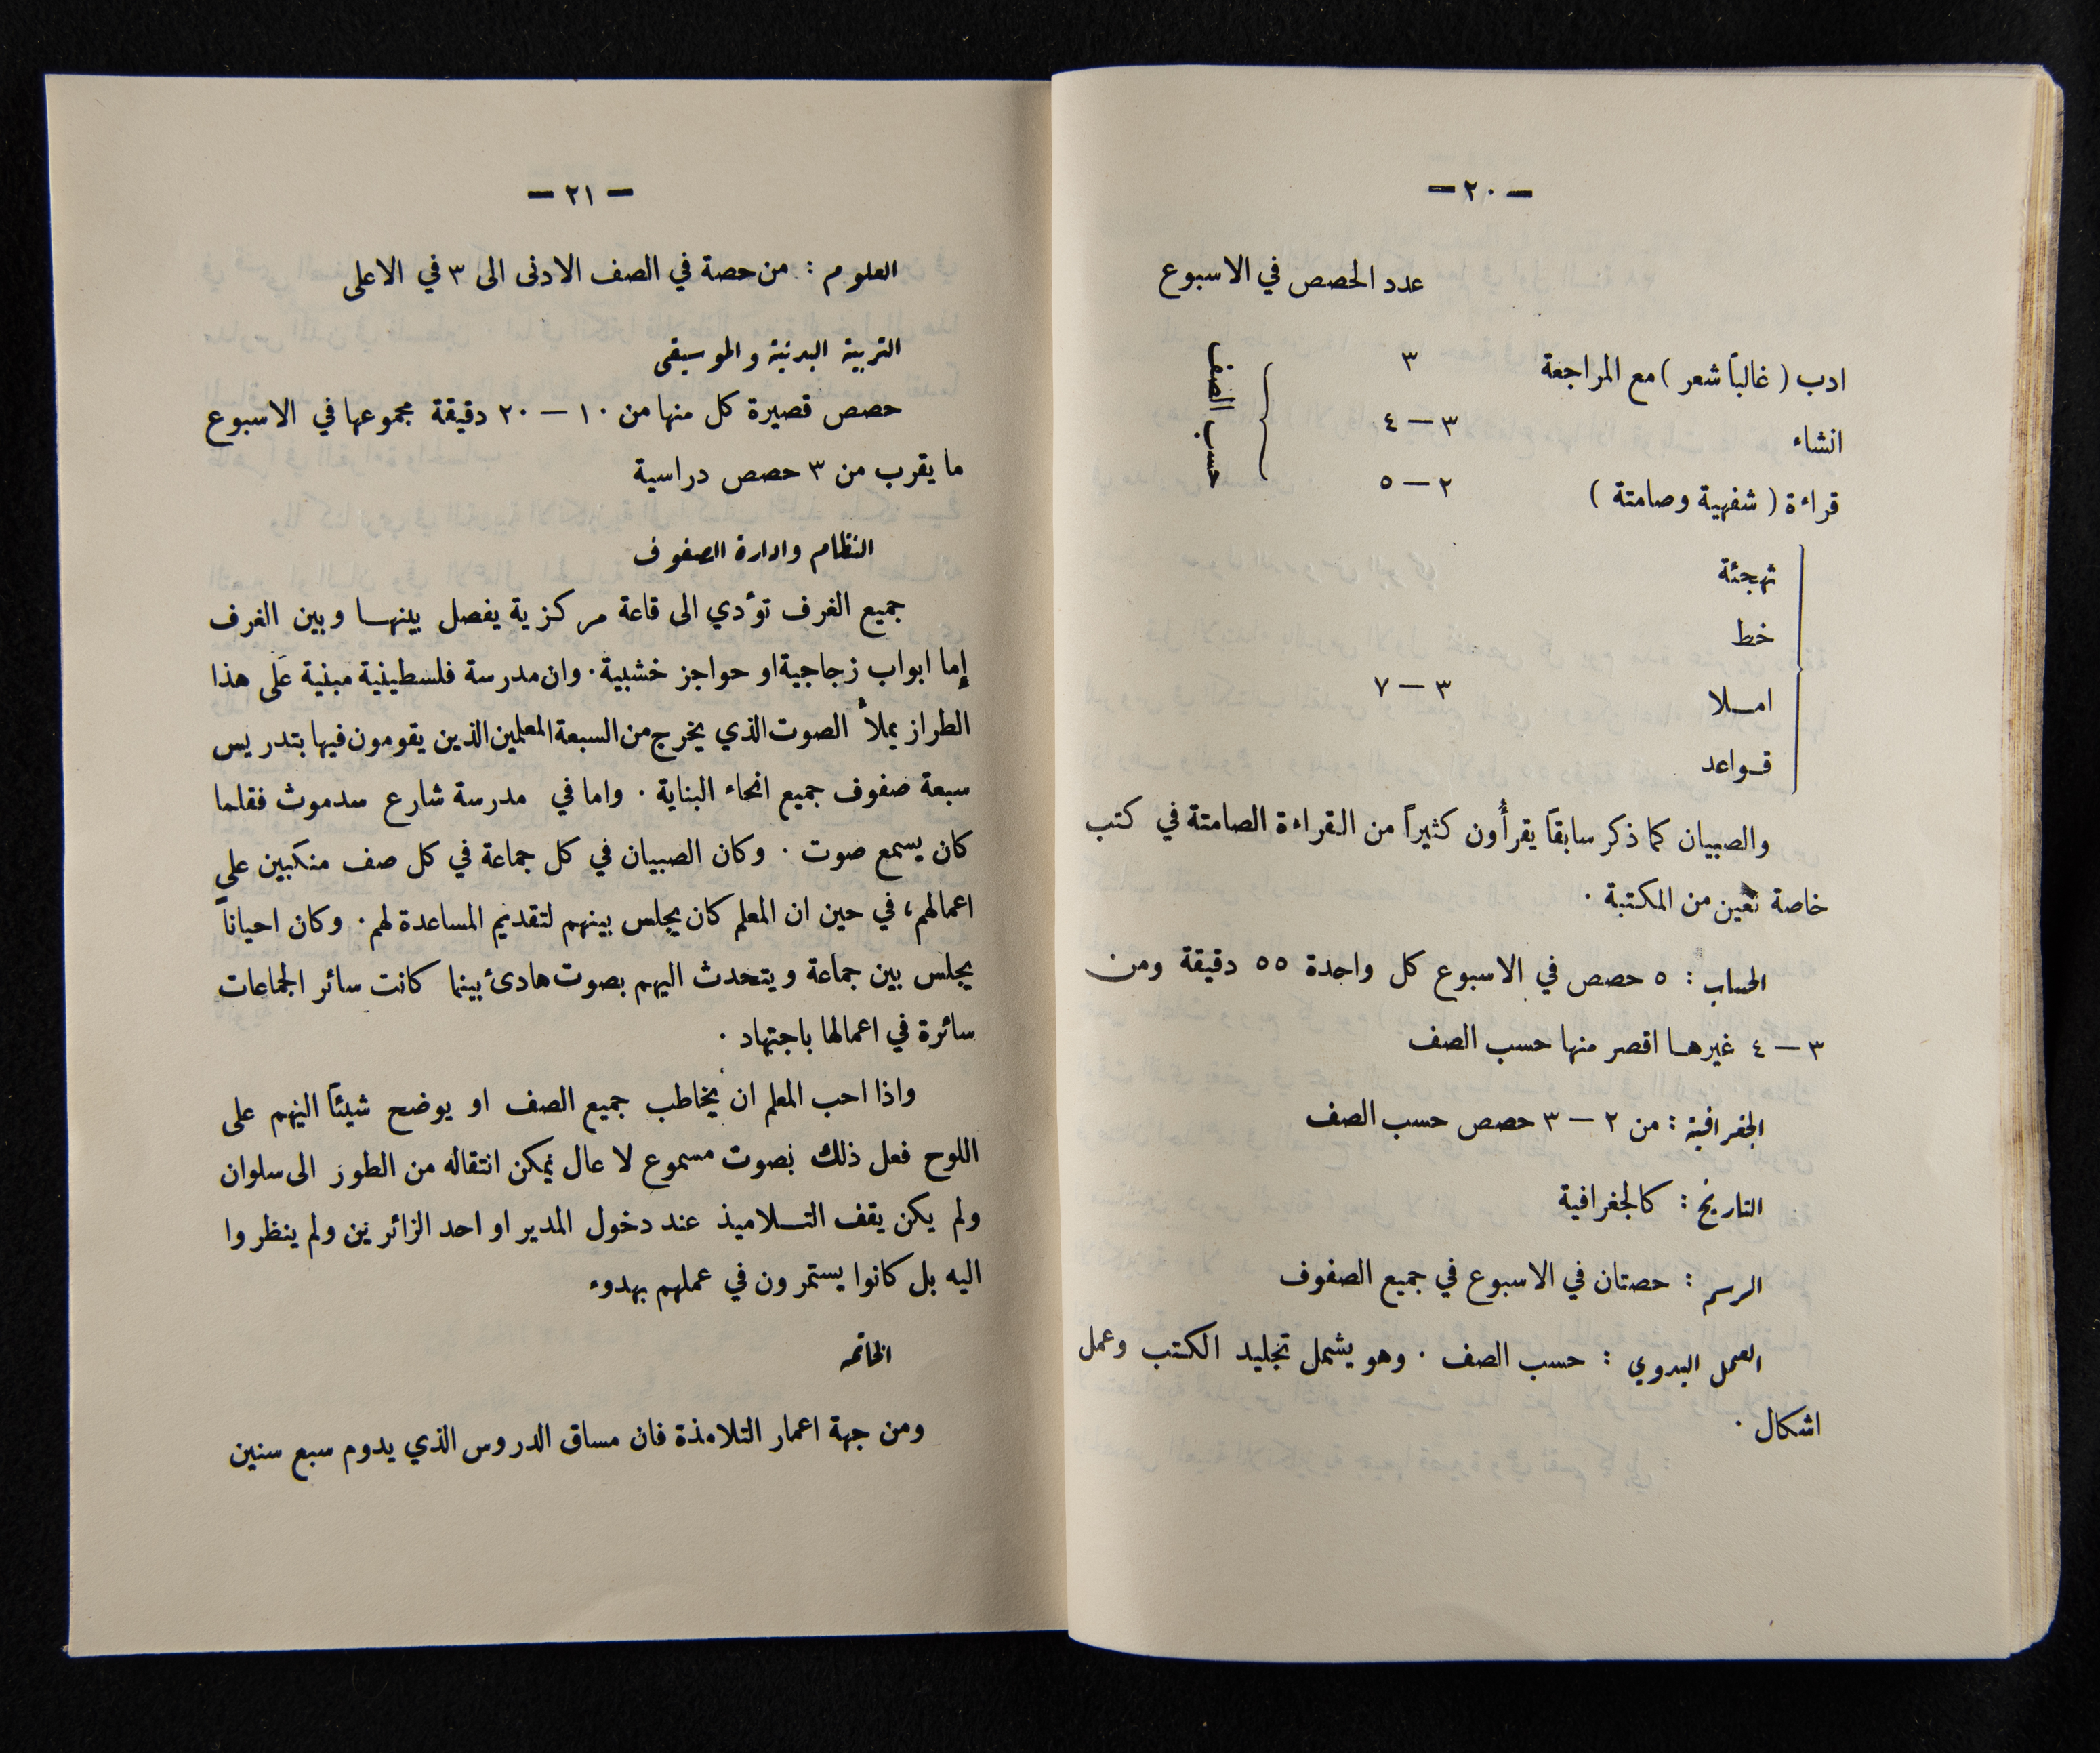 — ٢٠ —
عدد الحصص في الاسبوع
ادب ( غالباً شعر ) مع المراجعة ٣
انشاء ٣ — ٤
قراءة ( شفهية وصامتة ) ٢ — ٥
حسب الصف
تهجئة
خط
املا ٣ — ٧
قواعد
والصبيان كما ذكر سابقاً يقرأون كثيراً من القراءة الصامتة في كتب
خاصة تعين من المكتبة .
الحساب : ٥ حصص في الاسبوع كل واحدة ٥٥ دقيقة ومن
٣ — ٤ غيرها اقصر منها حسب الصف
الجغرافية : من ٢ — ٣ حصص حسب الصف
التاريخ : كالجغرافية
الرسم : حصتان في الاسبوع في جميع الصفوف
العمل اليدوي : حسب الصف . وهو يشمل تجليد الكتب وعمل
اشكال .
— ٢١ —
العلوم : من حصة في الصف الادنى الى ٣ في الاعلى
التربية البدنية والموسيقى
حصص قصيرة كل منها من ١٠ — ٢٠ دقيقة مجموعها في الاسبوع
ما يقرب من ٣ حصص دراسية
النظام وادارة الصفوف
جميع الغرف تؤدي الى قاعة مركزية يفصل بينها وبين الغرف
إما ابواب زجاجية او حواجز خشبية . وان مدرسة فلسطينية مبنية عَلَى هذا
الطراز يملأ الصوت الذي يخرج من السبعة المعلمين الذين يقومون فيها بتدريس
سبعة صفوف جميع انحاء البناية . واما في مدرسة شارع سدموث فقلما
كان يسمع صوت . وكان الصبيان في كل جماعة في كل صف منكبين على
اعمالهم، في حين ان المعلم كان يجلس بينهم لتقديم المساعدة لهم . وكان احياناً
يجلس بين جماعة ويتحدث اليهم بصوت هادئ بينما كانت سائر الجماعات
سائرة في اعمالها باجتهاد .
واذا احب المعلم ان يخاطب جميع الصف او يوضح شيئاً اليهم على
اللوح فعل ذلك بصوت مسموع لا عال يمكن انتقاله من الطور الى سلوان
ولم يكن يقف التلاميذ عند دخول المدير او احد الزائرين ولم ينظروا
اليه بل كانوا يستمرون في عملهم بهدوء
الخاتمة
ومن جهة اعمار التلامذة فان مساق الدروس الذي يدوم سبع سنين